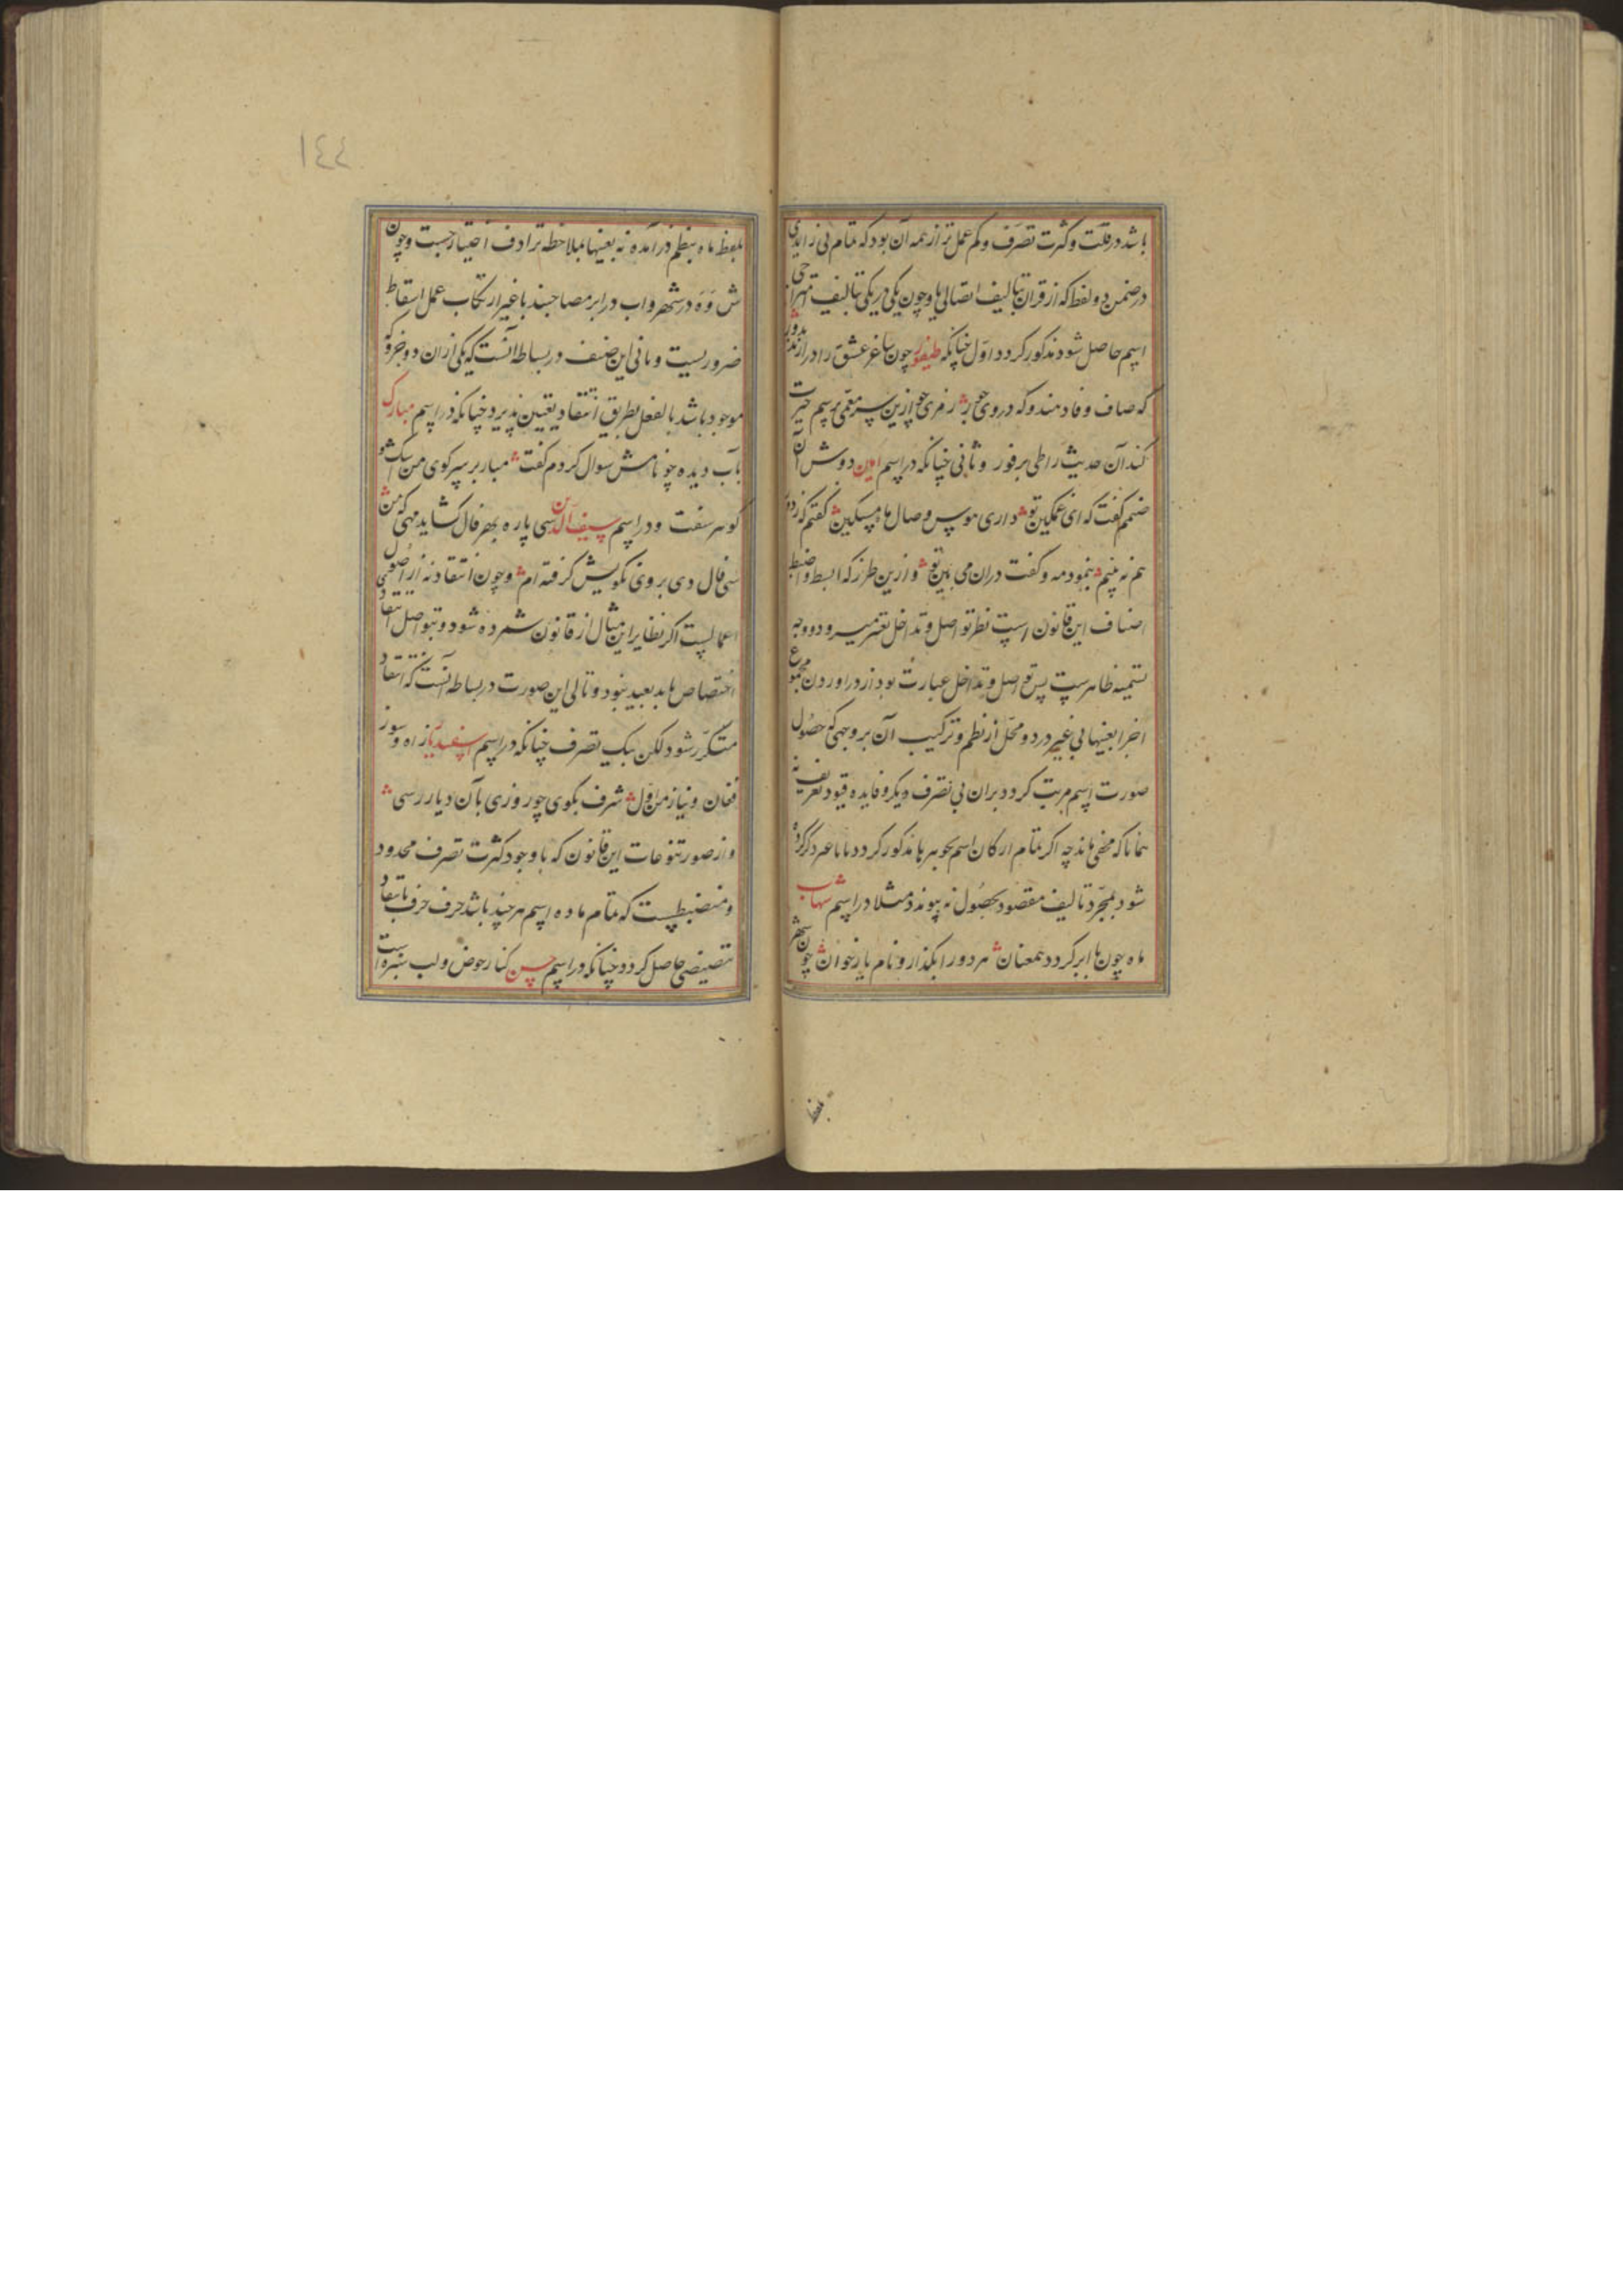 باشد در قلت و کثرت تصرف و کم عمل تر از همه آن بود که تمام بی زایدی
در ضمن دو لفظ که از قران تالیف اتصالی یا وجون یکی در یکی تالیف امتزاجی
اسم حاصل شود مذکور کردد اول چنانکه طیفور چون ساغر عشق را در ازند بدور
که صاف وفا دمند و که دردی جور رمزی جو ازین سر معمی برسم حیرت
کند آن حدیث را طی بر فور و ثانی چنانکه در اسم امین دوش آن
صنمم کفت که ای غمکین تو داری هوس وصال ما مسکین کفتم که
هم نه بینم بنمود مه و کفت دران می بین تو و ازین طرز که ابسط و اضبط
اصناف این قانون است نظر تواصل و تداخل تعبیر میرود و وجه
تسمیه ظاهرست پس تواصل و تداخل عبارت بود از در اوردن مجموع
اجزا بعینها بی غیر در دو محل از نظم و ترکیب آن بر وجهی که حصول
صورت اسم مرتب کردد بران بی تصرف دیکر و فایده قیود تعریف نه
همانا که مخفی ماند چه اکر تمام ارکان اسم بجوهرها مذکور کردد با ما عبر
شود بمجرد تالیف مقصود بحصول نه پیوندد مثلا در اسم شهاب
ماه چون با ابر کردد همعنان هر دو را بکذار و نام یار خوان چون شهر
بلفظ ماه بنظم در آمده نه بعینها بملاحظه ترادف احتیار جست و چون
ش و ه در شهر و اب در ابر مصاحبند با غیر ارتکاب عمل اسقاط
ضروریست و ثانی این صنف در بساطه انست که یکی از ان دو جزو که
موجود باشد بالفعل بطریق انتقاد تعیین پذیرد چنانکه در اسم مبارک
بآب دیده چو نامش سوال کردم کفت مبار بر سر کوی من اشک و
کوهر سفت و در اسم سیف الدین سی پاره بهر فال کشاید مهی که من
سی فال دی بروی نکویش کرفته ام و چون انتقاد نه از اصول
اعمالست اکر نظایر این مثال از قانون شمرده شود و تواصل انتقاد
اختصاص یابد بعید نبود و تالی این صورت در بساطه آنست که انتقاد
متکرر شود لکن بیک تصرف چنانکه در اسم اسفندیار راه و سوز
فغان و نیاز من اول شرف بکوی چو روزی بآن دیار رسی
و از صور تنوعات این قانون که با وجود کثرت تصرف محدود
و منضبطست که تمام ماده اسم هر چند باشد حرف حرف بانتقاد
تنصیصی حاصل کردد چنانکه در اسم حسن کنار حوض و لب سبزه است
بلفظ
١٤٤